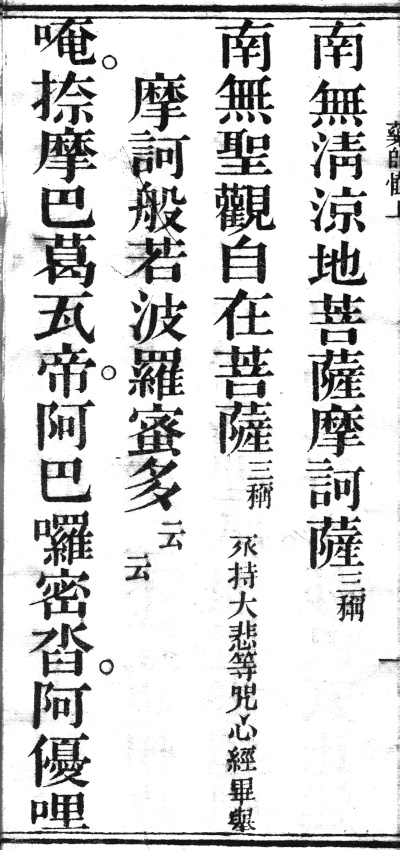 藥師懺上
一
南無清涼地菩薩摩訶薩三稱
南無聖觀自在菩薩三稱 來持大悲等咒心經畢舉
摩訶般若波羅蜜多云云
唵。捺摩巴葛瓦帝。阿巴囉密沓。阿優哩